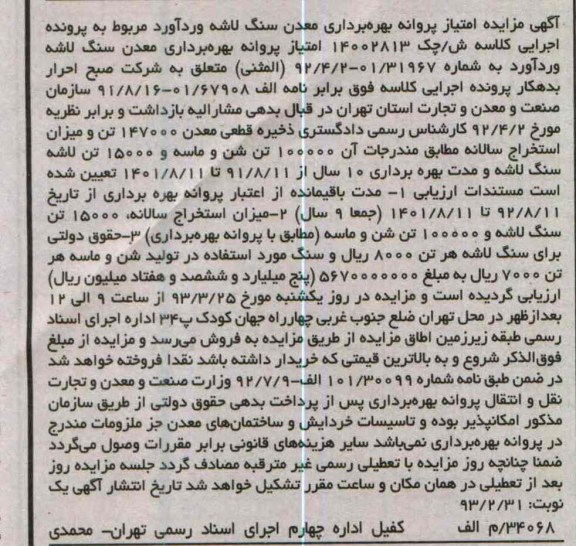 آگهی مزایده امتیاز پروانه بهره‌برداری معدن سنگ لاشه وردآورد مربوط به پرونده
اجرایی کلاسه ش/چک ۱۴۰۰۲۸۱۳ امتیاز پروانه بهره‌برداری معدن سنگ لاشه
وردآورد به شماره ۰۱/۳۱۹۶۷-۹۲/۴/۲ (المثنی) متعلق به شرکت صبح احرار
بدهکار پرونده اجرایی کلاسه فوق برابر نامه الف ۰۱/۶۷۹۰۸-۹۱/۸/۱۶ سازمان
صنعت و معدن و تجارت استان تهران در قبال بدهی مشارالیه بازداشت و برابر نظریه
مورخ ۹۲/۴/۲ کارشناس رسمی دادگستری ذخیره قطعی معدن ۱۴۷۰۰۰ تن و میزان
استخراج سالانه مطابق مندرجات آن ۱۰۰۰۰۰ تن شن و ماسه و ۱۵۰۰۰ تن لاشه
سنگ لاشه و مدت بهره برداری ۱۰ سال از ۹۱/۸/۱۱ تا ۱۴۰۱/۸/۱۱ تعیین شده
است مستندات ارزیابی ۱- مدت باقیمانده از اعتبار پروانه بهره برداری از تاریخ
۹۲/۸/۱۱ تا ۱۴۰۱/۸/۱۱ (جمعا ۹ سال) ۲-میزان استخراج سالانه، ۱۵۰۰۰ تن
سنگ لاشه و ۱۰۰۰۰۰ تن شن و ماسه (مطابق با پروانه بهره‌برداری) ۳-حقوق دولتی
برای سنگ لاشه هر تن ۸۰۰۰ ریال و سنگ مورد استفاده در تولید شن و ماسه هر
تن ۷۰۰۰ ریال به مبلغ ۵۶۷۰۰۰۰۰۰۰ (پنج میلیارد و ششصد و هفتاد میلیون ریال)
ارزیابی گردیده است و مزایده در روز یکشنبه مورخ ۹۳/۳/۲۵ از ساعت ۹ الی ۱۲
بعدازظهر در محل تهران ضلع جنوب غربی چهارراه جهان کودک پ۳۴ اداره اجرای اسناد
رسمی طبقه زیرزمین اطاق مزایده از طریق مزایده به فروش می‌رسد و مزایده از مبلغ
فوق‌الذکر شروع و به بالاترین قیمتی که خریدار داشته باشد نقدا فروخته خواهد شد
در ضمن طبق نامه شماره ۱۰۱/۳۰۰۹۹ الف-۹۲/۷/۹ وزارت صنعت و معدن و تجارت
نقل و انتقال پروانه بهره‌برداری پس از پرداخت بدهی حقوق دولتی از طریق سازمان
مذکور امکانپذیر بوده و تاسیسات خردایش و ساختمان‌های معدن جز ملزومات مندرج
در پروانه بهره‌برداری نمی‌باشد سایر هزینه‌های قانونی برابر مقررات وصول می‌گردد
ضمنا چنانچه روز مزایده با تعطیلی رسمی غیر مترقبه مصادف گردد جلسه مزایده روز
بعد از تعطیلی در همان مکان و ساعت مقرر تشکیل خواهد شد تاریخ انتشار آگهی یک
نوبت: ۹۳/۲/۳۱
۳۴۰۶۸/م الف کفیل اداره چهارم اجرای اسناد رسمی تهران- محمدی